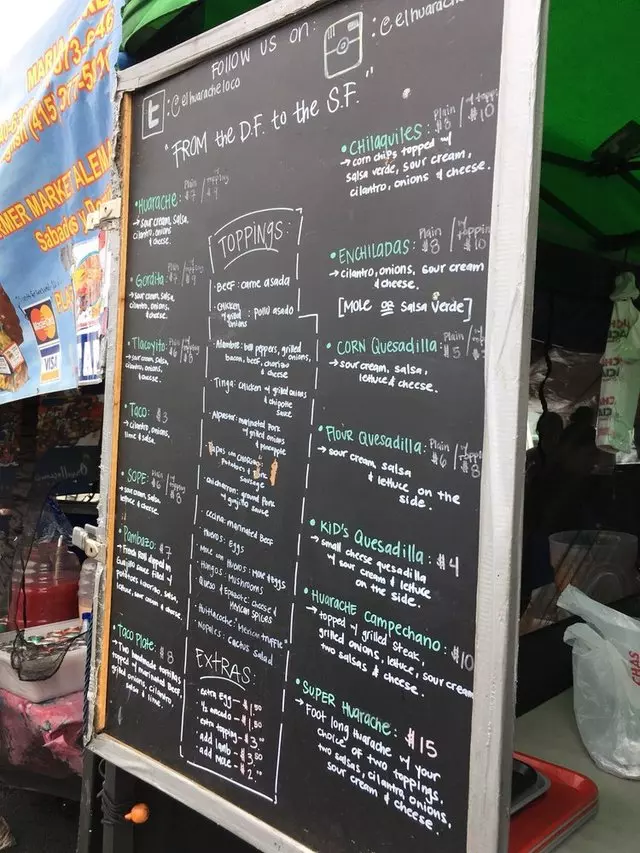 FOLLOW US ON:
: @elhuaracheloco
: @elhuarache
"FROM the D.F. to the S.F."
• HUARACHE: Plain $7
→ sour cream, salsa,
cilantro, onions
& cheese.
• Gordita:
→ sour cream, salsa,
cilantro, onions,
& cheese.
• Tlacoyito:
→ sour cream, salsa,
cilantro, onions,
& cheese.
• Taco: $3
→ cilantro, onions,
lime & salsa.
• SOPE: $6 / $8
→ sour cream, salsa,
lettuce & cheese.
• Pambazo: $7
→ French Roll dipped in
Guajillo sauce filled w/
potatoes & chorizo, salsa,
lettuce, sour cream & cheese.
• Taco Plate: $8
→ Two handmade tortillas
topped w/ marinated Beef,
grilled onions, cilantro,
salsa & lime.
TOPPINGS:
• BEEF: carne asada
• CHICKEN
w/ grilled onions : pollo asado
• Alambre: bell peppers, grilled onions,
bacon, beef, chorizo
& cheese
• Tinga: Chicken w/ grilled onions
& chipotle
sauce
• Alpastor: marinated Pork
w/ grilled onions
& pineapple
Potatoes &
Sausage
• Chicharron: ground Pork
w/ guajillo sauce
• Cecina: marinated Beef
• Huevos: Eggs
• Mole con Huevos: Mole & Eggs
• Hongos: Mushrooms
• Queso & Epazote: cheese &
Mexican Spices
• Huitlacoche: Mexican truffle
• Nopales: Cactus Salad
EXTRAS:
• extra Egg - $1.50
• extra topping - $3.
• add lamb - $3.50
• add mole - $2.
• CHILAQUILES: Plain $8 / $10
→ corn chips topped w/
salsa verde, sour cream,
cilantro, onions & cheese.
• ENCHILADAS: Plain $8 / $10
→ cilantro, onions, sour cream
& cheese.
[MOLE OR Salsa Verde]
• CORN Quesadilla: Plain $5
→ sour cream, salsa,
lettuce & cheese.
• Flour Quesadilla: Plain $6 / $8
→ sour cream, salsa
& lettuce on the
side.
• KID'S Quesadilla: $4
→ small cheese quesadilla
w/ sour cream & lettuce
on the side.
• HUARACHE CAMPECHANO: $10
→ topped w/ grilled steak,
grilled onions, lettuce, sour cream
two salsas & cheese.
• SUPER HUARACHE: $15
→ Foot long Huarache w/ your
choice of two toppings,
two salsas, cilantro, onions,
sour cream & cheese.
MasterCard
VISA